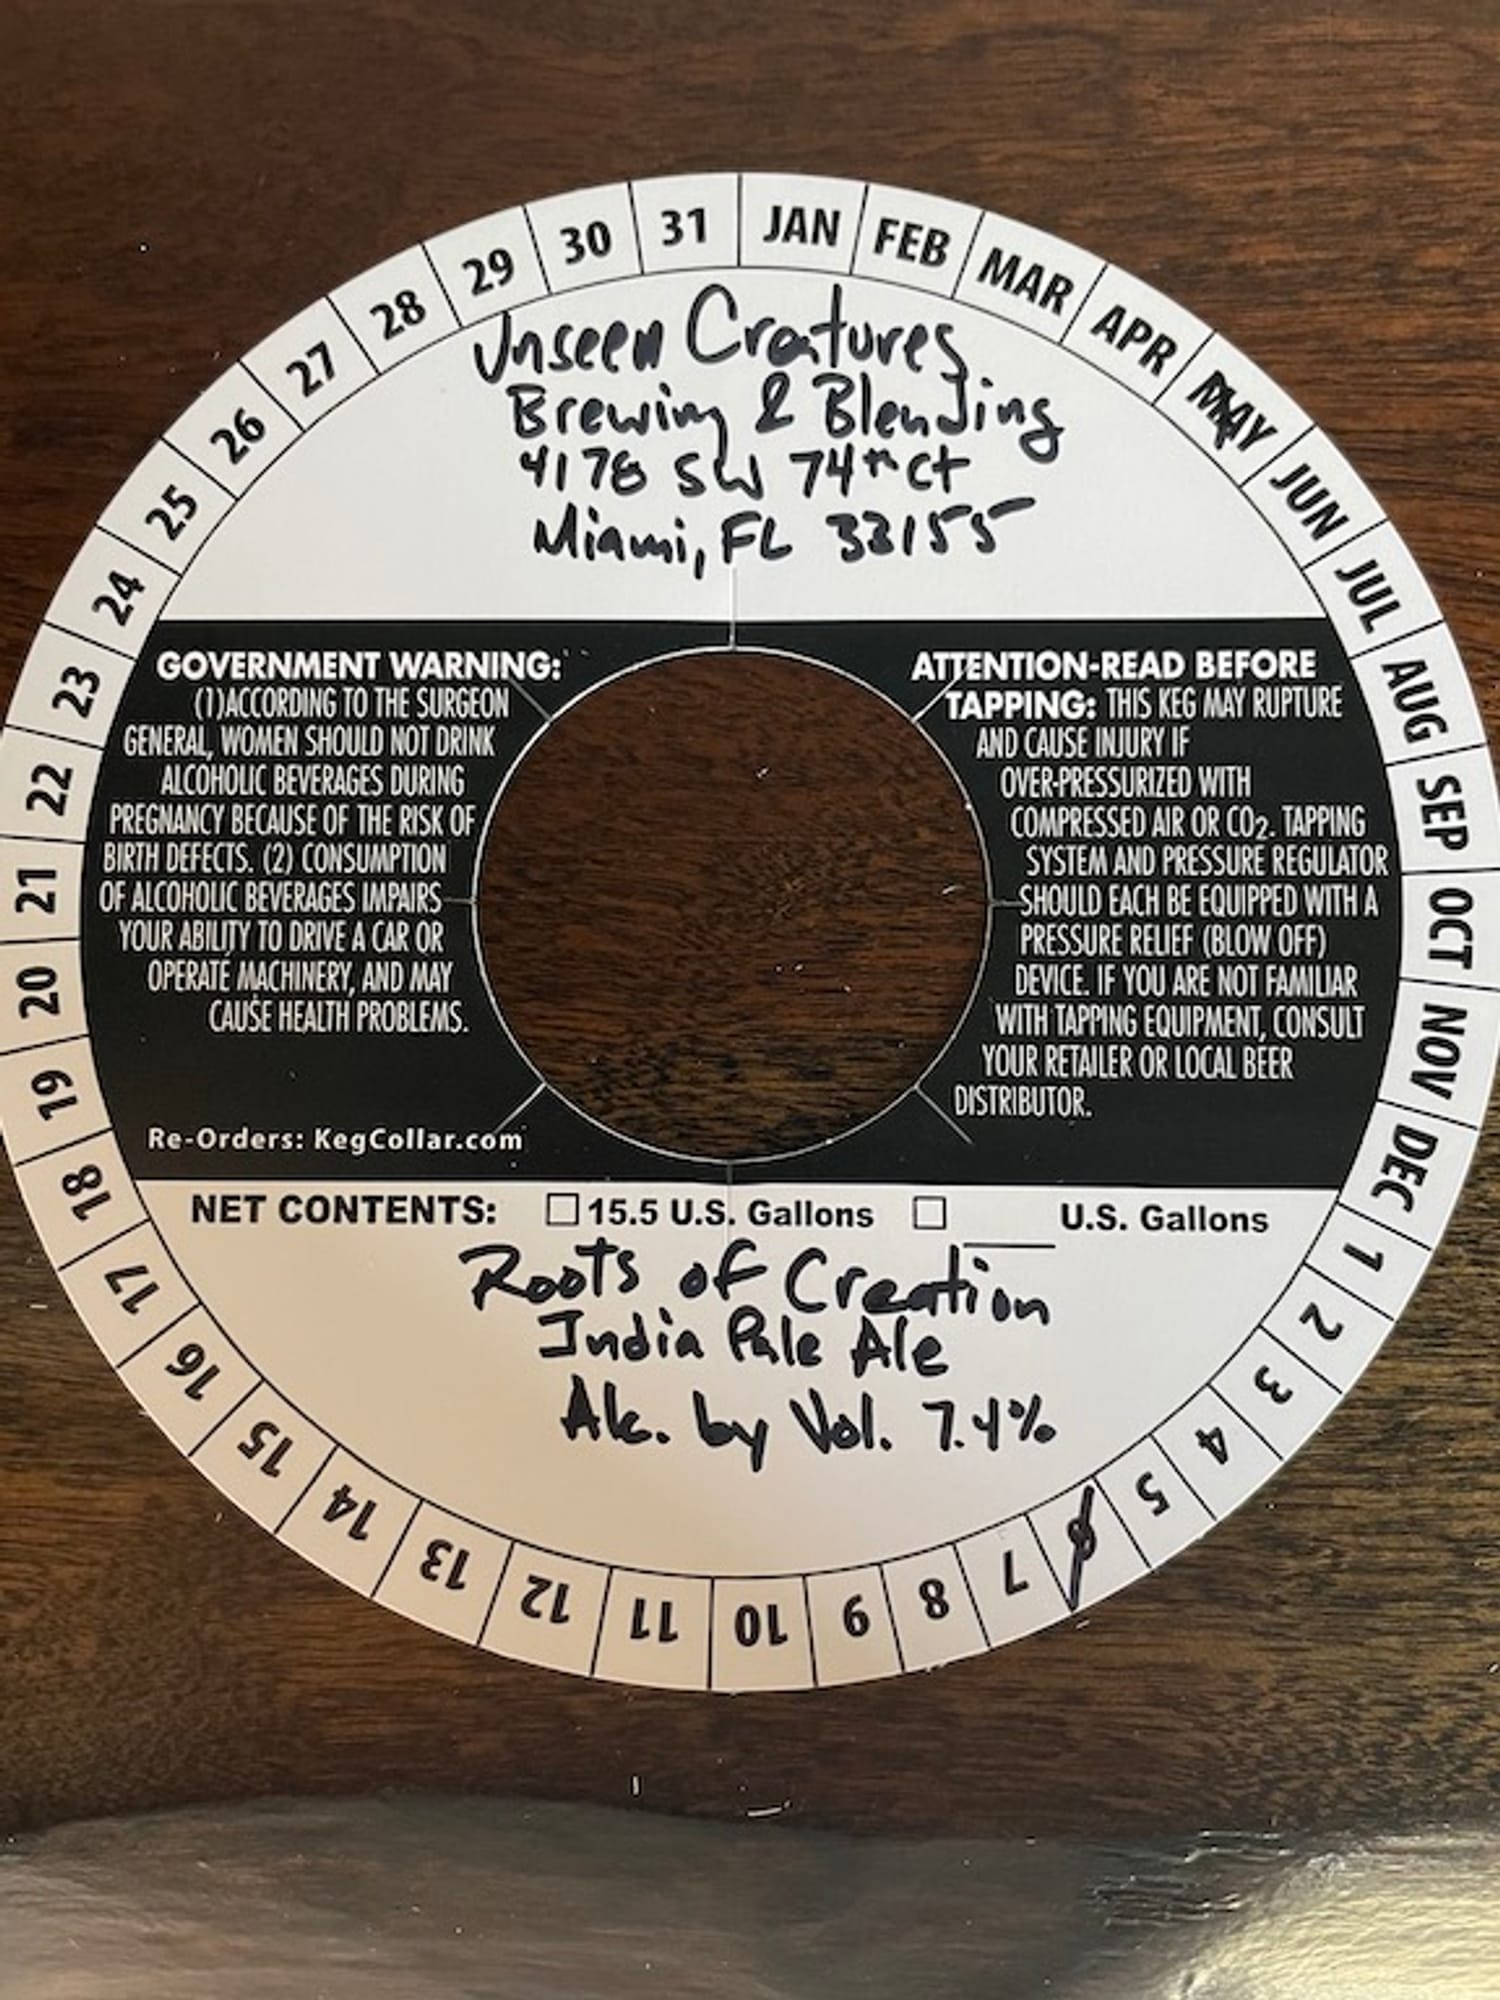 JAN
FEB
MAR
APR
MAY
JUN
JUL
AUG
SEP
OCT
NOV
DEC
1
2
3
4
5
6
7
8
9
10
11
12
13
14
15
16
17
18
19
20
21
22
23
24
25
26
27
28
29
30
31
Unseen Creatures
Brewing & Blending
4178 SW 74th Ct
Miami, FL 33155
GOVERNMENT WARNING:
(1)ACCORDING TO THE SURGEON
GENERAL, WOMEN SHOULD NOT DRINK
ALCOHOLIC BEVERAGES DURING
PREGNANCY BECAUSE OF THE RISK OF
BIRTH DEFECTS. (2) CONSUMPTION
OF ALCOHOLIC BEVERAGES IMPAIRS
YOUR ABILITY TO DRIVE A CAR OR
OPERATE MACHINERY, AND MAY
CAUSE HEALTH PROBLEMS.
Re-Orders: KegCollar.com
ATTENTION-READ BEFORE
TAPPING: THIS KEG MAY RUPTURE
AND CAUSE INJURY IF
OVER-PRESSURIZED WITH
COMPRESSED AIR OR CO2. TAPPING
SYSTEM AND PRESSURE REGULATOR
SHOULD EACH BE EQUIPPED WITH A
PRESSURE RELIEF (BLOW OFF)
DEVICE. IF YOU ARE NOT FAMILIAR
WITH TAPPING EQUIPMENT, CONSULT
YOUR RETAILER OR LOCAL BEER
DISTRIBUTOR.
NET CONTENTS: ☐ 15.5 U.S. Gallons ☐ ____ U.S. Gallons
Roots of Creation
India Pale Ale
Alc. by Vol. 7.4%